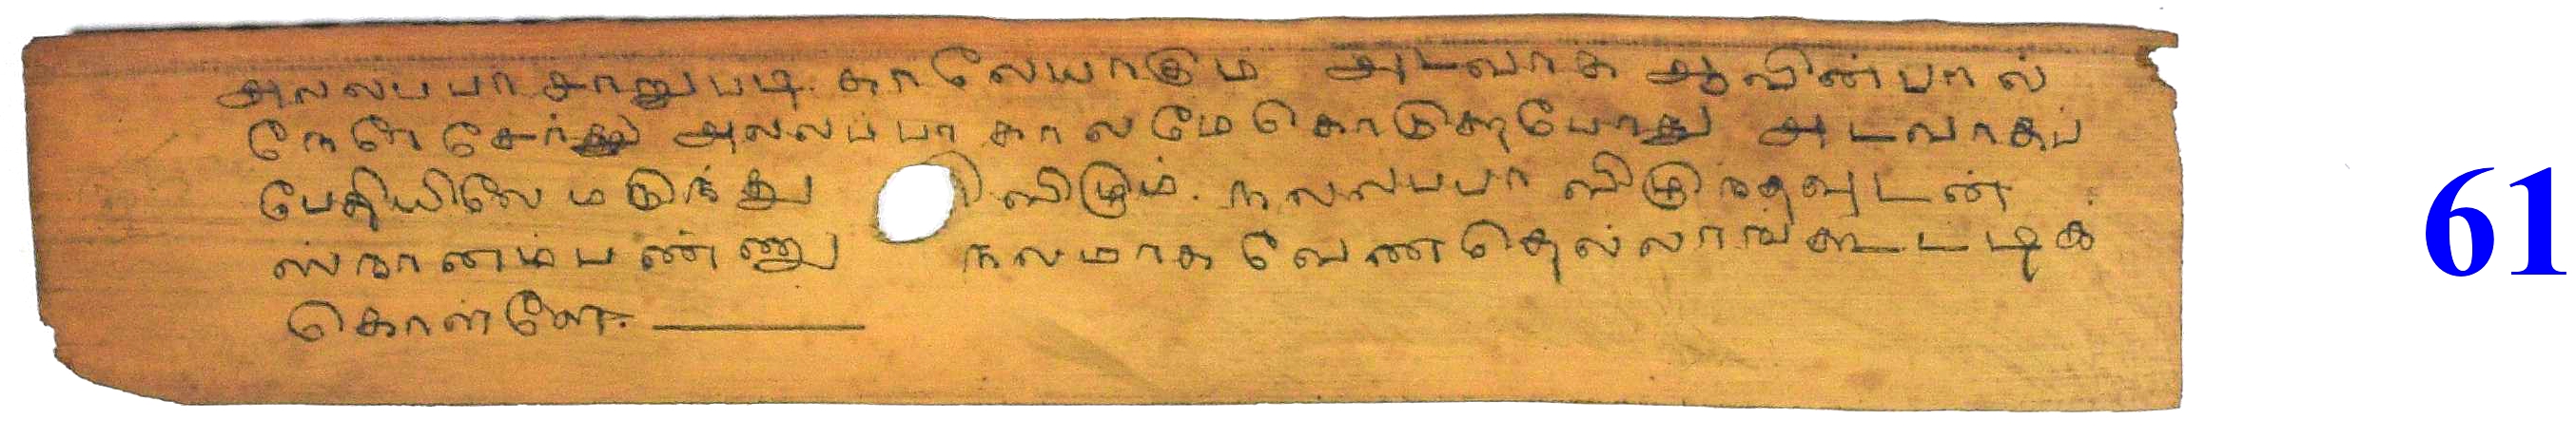 அலலபபாசாறுபடி காலேயாகும் அடவாக ஆவின்பால்
நேரே சேர்த்து அலலபபா காலமே கொடுககுபோது அடவாகப்
பேதியிலே மருந்து விழும். நலலபபா விழுநதவுடன்
ஸ்நானம்பண்ணு நலமாக வேணதெல்லாங்கூட்டிக்
கொள்ளே.
61